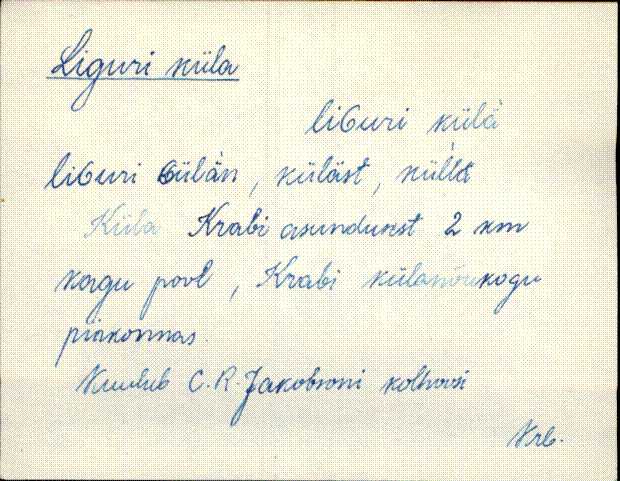 Liguri küla
liGuri külä
liGuri Gülän, küläst, küllä
Küla Krabi asundusest 2 km
kagu pool, Krabi külanõukogu
piirkonnas.
Kuulub C. R. Jakobsoni kolhoosi
Vrb.